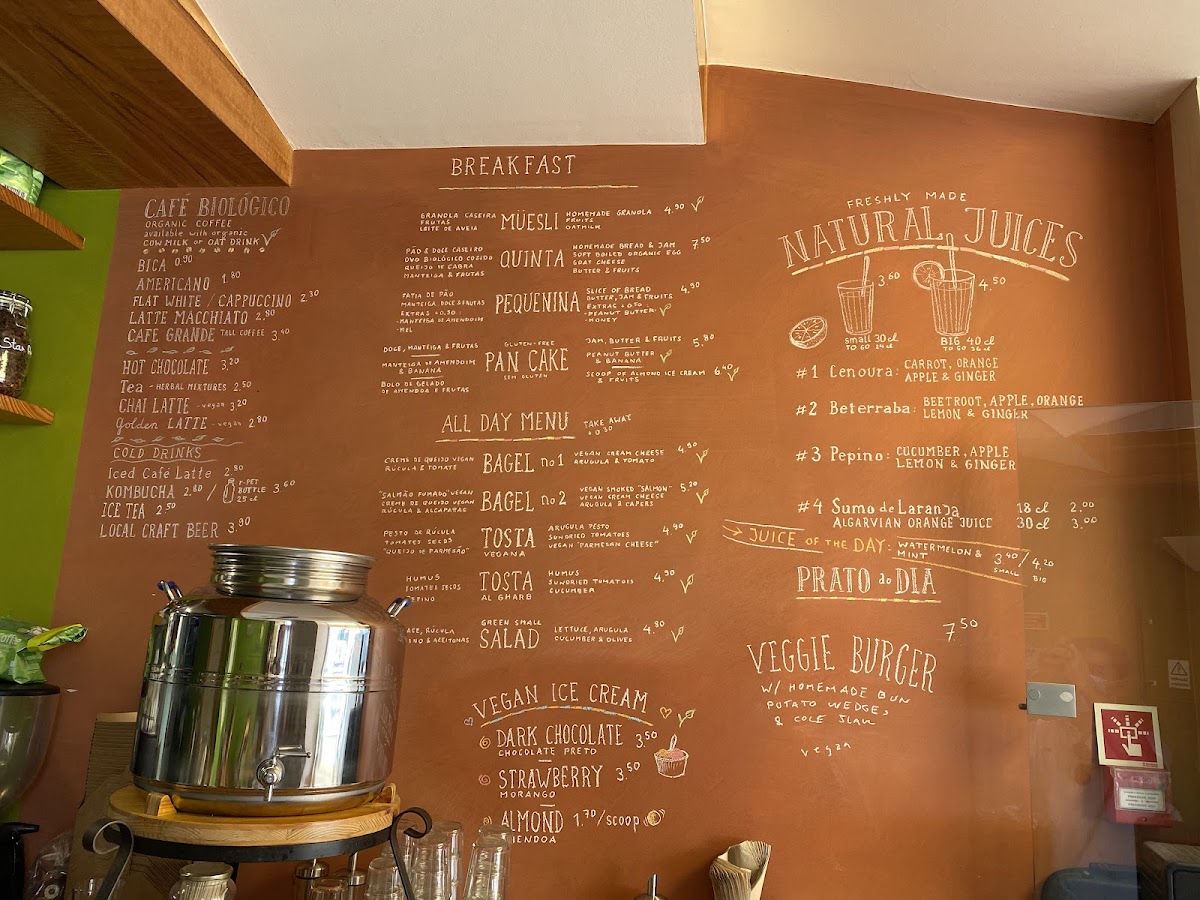 CAFÉ BIOLÓGICO
ORGANIC COFFEE
available with organic
COW MILK or OAT DRINK
BICA 0.90
AMERICANO 1.80
FLAT WHITE / CAPPUCCINO 2.30
LATTE MACCHIATO 2.80
CAFÉ GRANDE TALL COFFEE 3.40
HOT CHOCOLATE 3.20
Tea - HERBAL MIXTURES 2.50
CHAI LATTE - vegan 3.20
Golden LATTE - vegan 2.80
COLD DRINKS
Iced Café Latte 2.80
KOMBUCHA 2.80 / r-PET BOTTLE 25 cl 3.60
ICE TEA 2.50
LOCAL CRAFT BEER 3.90
BREAKFAST
GRANOLA CASEIRA
FRUTAS
LEITE DE AVEIA
MÜESLI
HOMEMADE GRANOLA 4.90
FRUITS
OATMILK
PÃO & DOCE CASEIRO
OVO BIOLÓGICO COSIDO
QUEIJO DE CABRA
MANTEIGA & FRUTAS
QUINTA
HOMEMADE BREAD & JAM 7.50
SOFT BOILED ORGANIC EGG
GOAT CHEESE
BUTTER & FRUITS
FATIA DE PÃO
MANTEIGA, DOCE & FRUTAS
EXTRAS +0.50
-MANTEIGA DE AMENDOIM
-MEL
PEQUENINA
SLICE OF BREAD 4.50
BUTTER, JAM & FRUITS
EXTRAS +0.50
-PEANUT BUTTER
-HONEY
DOCE, MANTEIGA & FRUTAS
MANTEIGA DE AMENDOIM
& BANANA
BOLO DE GELADO
DE AMENDOA E FRUTAS
GLUTEN-FREE
PAN CAKE
SEM GLUTEN
JAM, BUTTER & FRUITS 5.80
PEANUT BUTTER
& BANANA
SCOOP OF ALMOND ICE CREAM 6.40
& FRUITS
ALL DAY MENU
TAKE AWAY
+0.30
CREME DE QUEIJO VEGAN
RÚCULA & TOMATE
BAGEL no1
VEGAN CREAM CHEESE 4.90
ARUGULA & TOMATO
"SALMÃO FUMADO" VEGAN
CREME DE QUEIJO VEGAN
RÚCULA & ALCAPARAS
BAGEL no 2
VEGAN SMOKED "SALMON" 5.20
VEGAN CREAM CHEESE
ARUGULA & CAPERS
PESTO DE RÚCULA
TOMATES SECOS
"QUEIJO DE PARMESÃO"
TOSTA
VEGANA
ARUGULA PESTO 4.90
SUNDRIED TOMATOES
VEGAN "PARMESAN CHEESE"
HUMUS
TOMATES SECOS
PEPINO
TOSTA
AL GHARB
HUMUS 4.50
SUNDRIED TOMATOES
CUCUMBER
ACE, RÚCULA
INO & AZEITONAS
GREEN SMALL
SALAD
LETTUCE, ARUGULA 4.80
CUCUMBER & OLIVES
VEGAN ICE CREAM
DARK CHOCOLATE 3.50
CHOCOLATE PRETO
STRAWBERRY 3.50
MORANGO
ALMOND 1.70/scoop
ENDOA
FRESHLY MADE
NATURAL JUICES
3.60
4.50
small 30 cl
TO GO 24 cl
BIG 40 cl
TO GO 36 cl
#1 Cenoura: CARROT, ORANGE
APPLE & GINGER
#2 Beterraba: BEETROOT, APPLE, ORANGE
LEMON & GINGER
#3 Pepino: CUCUMBER, APPLE
LEMON & GINGER
#4 Sumo de Laranja 18 cl 2.00
ALGARVIAN ORANGE JUICE 30 cl 3.00
JUICE OF THE DAY: WATERMELON & MINT 3.40 SMALL / 4.20 BIG
PRATO do DIA
VEGGIE BURGER 7.50
W/ HOMEMADE BUN
POTATO WEDGES
& COLE SLAW
vegan